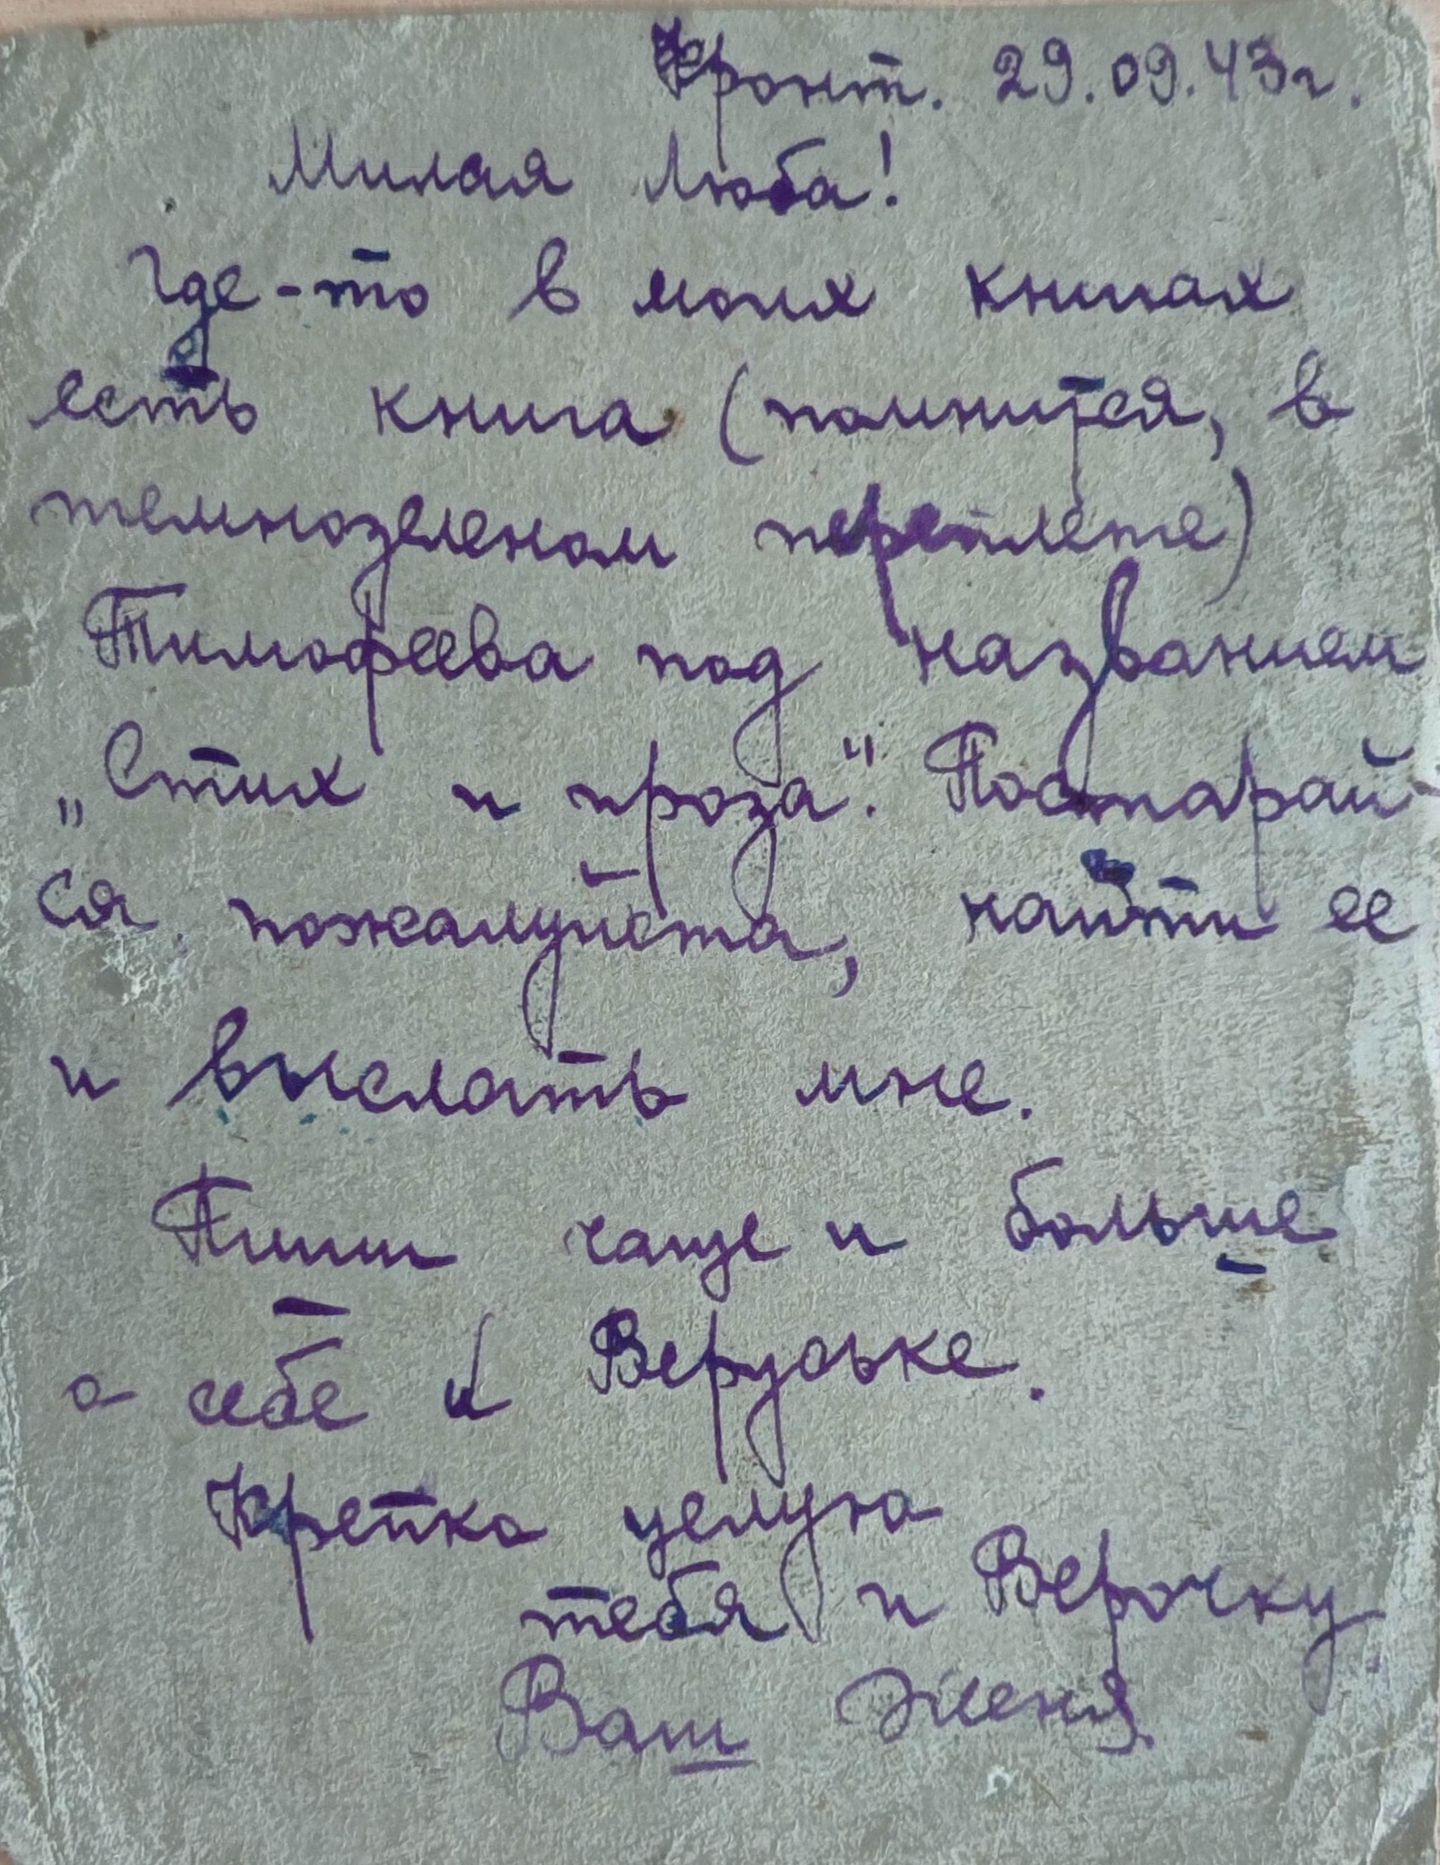 Фронт. 29.09.43г.
Милая Люба!
Где-то в моих книгах
есть книга (помнится, в
темнозеленом переплете)
Тимофеева под названием
„Стих и проза". Постарай-
ся, пожалуйста, найти ее
и выслать мне.
Пиши чаще и больше
о себе и Веруське.
Крепко целую
тебя и Верочку
Ваш Женя.